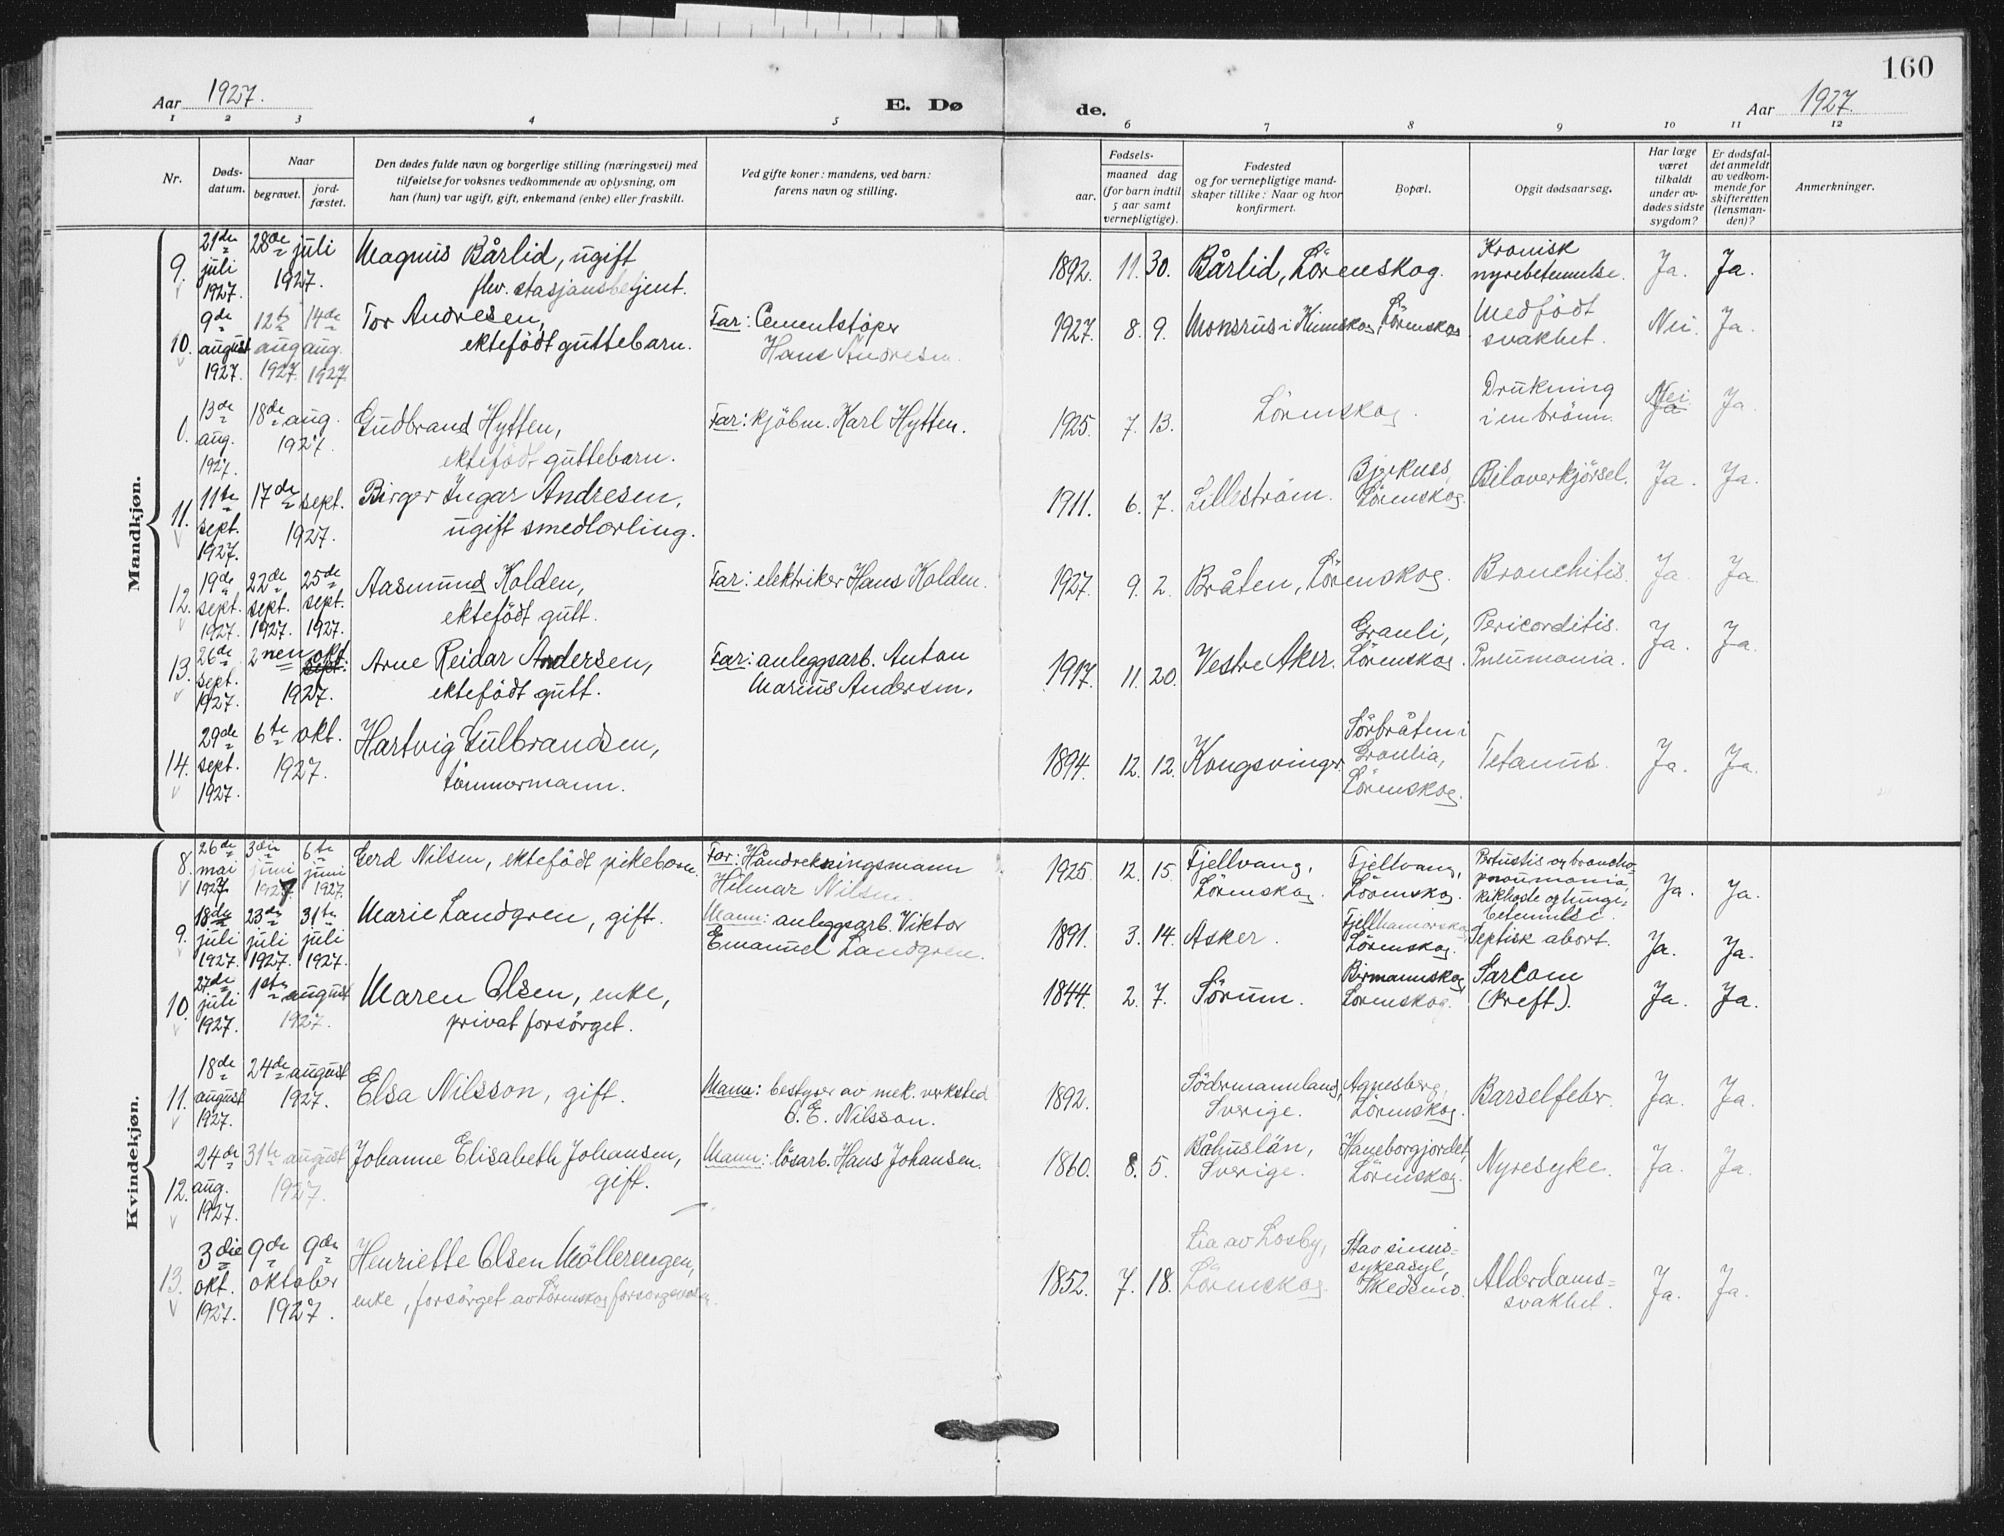 160
Aar 1927.
E. Døde.
Aar 1927.
1 2 3 4 5 6 7 8 9 10 11 12
Nr.
Døds-
datum.
Naar
begravet.
jord-
fæstet.
Den dødes fulde navn og borgerlige stilling (næringsvei) med
tilføielse for voksnes vedkommende av oplysning, om
han (hun) var ugift, gift, enkemand (enke) eller fraskilt.
Ved gifte koner: mandens, ved barn:
farens navn og stilling.
Fødsels-
aar.
maaned dag
(for barn indtil
5 aar samt
vernepligtige).
Fødested
og for vernepligtige mand-
skaper tillike: Naar og hvor
konfirmert.
Bopæl.
Opgit dødsaarsag.
Har læge
været
tilkaldt
under av-
dødes sidste
sygdom?
Er dødsfal-
det anmeldt
av vedkom-
mende for
skifteretten
(lensman-
den)?
Anmerkninger.
Mandkjøn.
9. 21de juli 1927. 28de juli 1927. Magnus Bårlid, ugift
flw. stasjonsbetjent.
1892. 11. 30. Bårlid, Lörenskog. Kronisk
nyrebetennelse. Ja. Ja.
10. 9de august 1927. 12te aug 1927. 14de aug. 1927. Tor Andresen,
ektefödt guttebarn.
Far: Cementstöper
Hans Andresen.
1927. 8. 9. Monsrus i Finnskog, Lörenskog Medfödt
svakhet. Nei. Ja.
0. 13de aug. 1927. 18de aug. 1927. Gudbrand Hytten,
ektefödt guttebarn.
Far: kjöbm. Karl Hytten.
1925. 7. 13. Lörenskog. Drukning
i en brönn. Nei Ja Ja.
11. 11te sept. 1927. 17de sept. 1927. Birger Ingar Andresen,
ugift smedlærling.
1911. 6. 7. Lilleström. Bjerknes,
Lörenskog. Biloverkjörsel. Ja. Ja.
12. 19de sept. 1927. 22de sept. 1927. 25de sept. 1927. Aasmund Kolden,
ektefödt gutt.
Far: elektriker Hans Kolden.
1927. 9. 2. Bråten, Lörenskog. Bronchitis. Ja. Ja.
13. 26de sept. 1927. 2nen okt sept. 1927. Arne Reidar Andersen,
ektefödt gutt.
Far: anleggsarb. Anton
Marius Andersen.
1917. 11. 20. Vestre Aker. Granli,
Lörenskog. Pericorditis.
Pneumonia. Ja. Ja.
14. 29de sept. 1927. 6te okt. 1927. Hartvig Gulbrandsen,
tömmermann.
1894. 12. 12. Kongsvinger Sörbråten i
Granlia,
Lörenskog. Tetanus. Ja. Ja.
Kvindekjøn.
8. 26de mai 1927. 3die juni 1927 6te juni 1927. Gerd Nilsen, ektefödt pikebarn.
Far: Håndrekningsmann
Hilmar Nilsen.
1925. 12. 15. Fjellvang,
Lörenskog. Fjellvang,
Lörenskog. Pertussis og broncho-
pneumonia,
kikhoste og lunge-
betennelse. Ja. Ja.
9. 18de juli 1927. 23de juli 1927. 31te juli 1927. Marie Landgren, gift.
Mann: anleggsarb. Viktor
Emanuel Landgren.
1891. 3. 14. Asker. Fjellhamarskog
Lörenskog. Septisk abort. Ja. Ja.
10. 27de juli 1927. 1ste august 1927. Maren Olsen, enke,
privat forsörget.
1844. 2. 7. Sörum. Birmannskog
Lörenskog. Sarcom
(kreft). Ja. Ja.
11. 18de august 1927. 24de august 1927. Elsa Nilsson, gift.
Mann: bestyrer av mek. verksted
O. E. Nilsson.
1892. Södermannland,
Sverige. Agnesberg,
Lörenskog. Barselfeber. Ja. Ja.
12. 24de aug. 1927. 31te august 1927. Johanne Elisabeth Johansen,
gift.
Mann: lösarb. Hans Johansen.
1860. 8. 5. Båhuslän,
Sverige. Haneborgjordet,
Lörenskog. Nyresyke. Ja. Ja.
13. 3die okt. 1927. 9de 9de oktober 1927. Henriette Olsen Möllerengen,
enke, forsörget av Lörenskog forsorgsvesen.
1852. 7. 18. Lia av Losby,
Lörenskog. Stavsinus-
sykeasyl,
Skedsmo. Alderdoms-
svakhet. Ja. Ja.